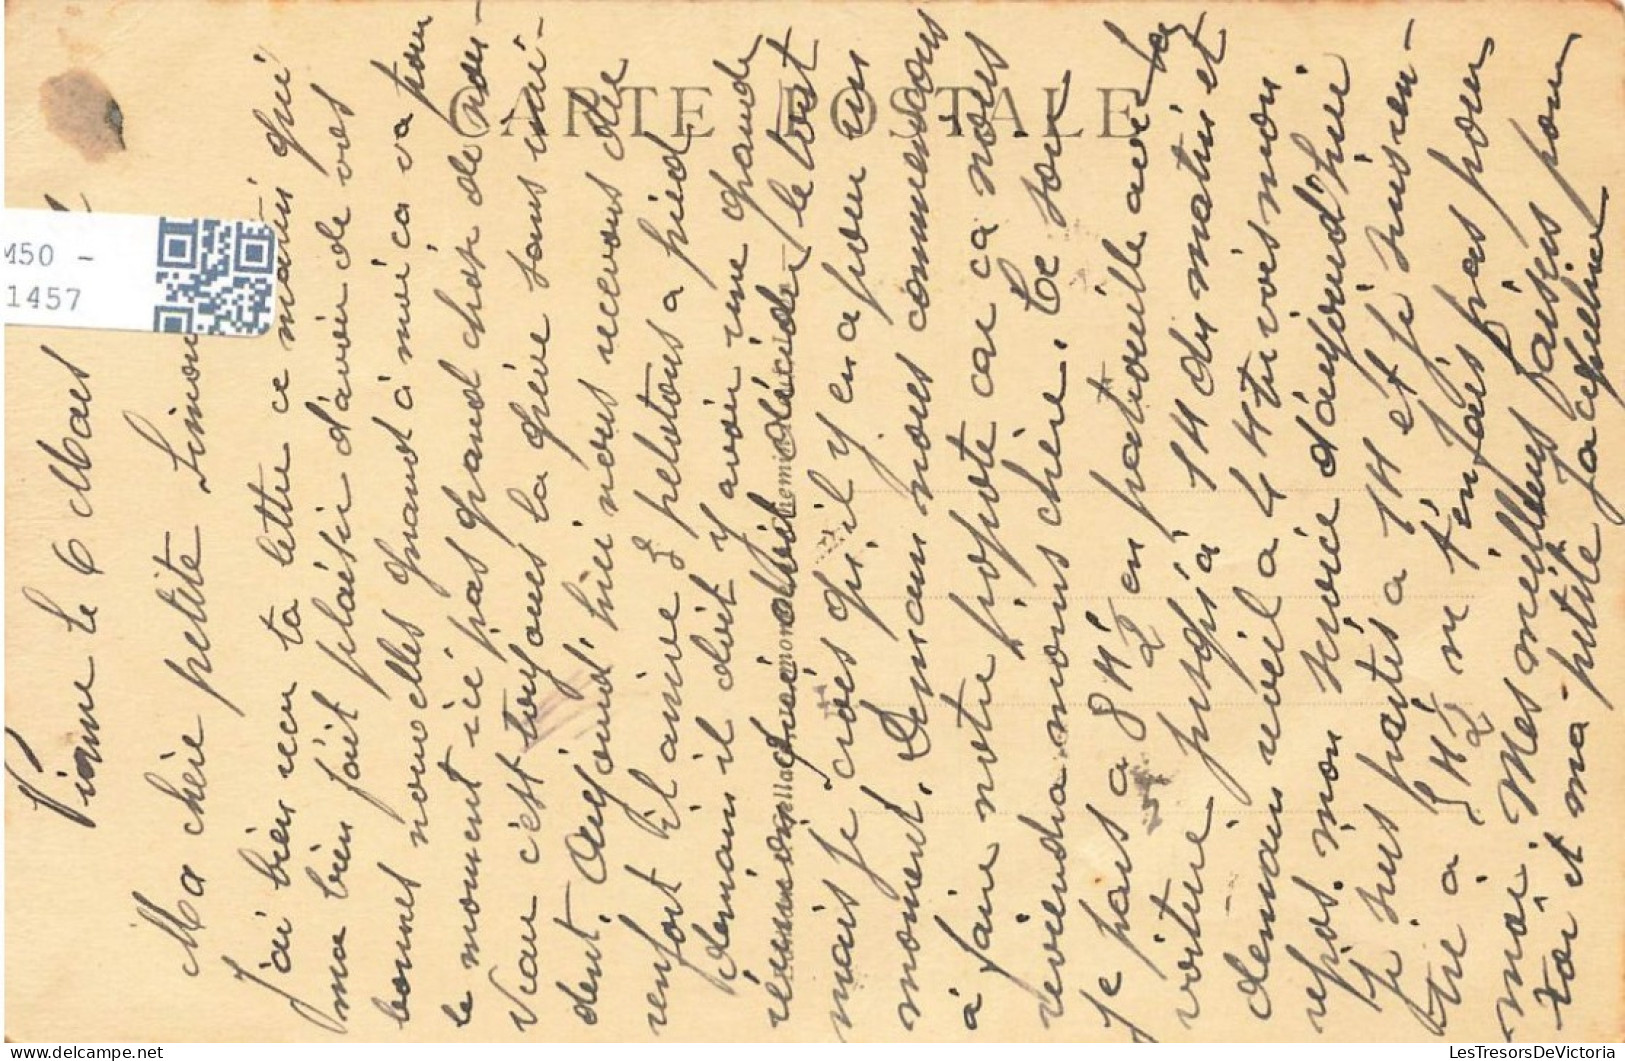 CARTE POSTALE
M50 -
1457
le 6 Mars
Ma chère petite Simone
J'ai bien reçu ta lettre ce matin qui
ma bien fait plaisir d'avoir de vos
bonnes nouvelles quand à moi ca va pour
le moment ici pas grand chose de nou-
veau c'est toujours la grève sans inci-
dent. Aujourd'hui nous recevons du
renfort il arrive 3 pelotons a pied
demain il doit y avoir une grande
réunion décider le tout
mais je crois qu'il y en a pour un
moment. Demain nous commencons
à faire notre popote car ca nous
reviendra moins chère. Ce soir
Je pars a 8H 1/2 en patrouille avec la
voiture jusqu'à 1H du matin et
demain réveil a 4H tu vois mon
repos. mon service d'aujourd'hui
Je suis partis a 1H et je suis ren-
tré à 5H 1/2 ne t'en fais pas pour
moi. Mes meilleurs baisers pour
toi et ma petite Jacqueline
LesTresorsDeVictoria